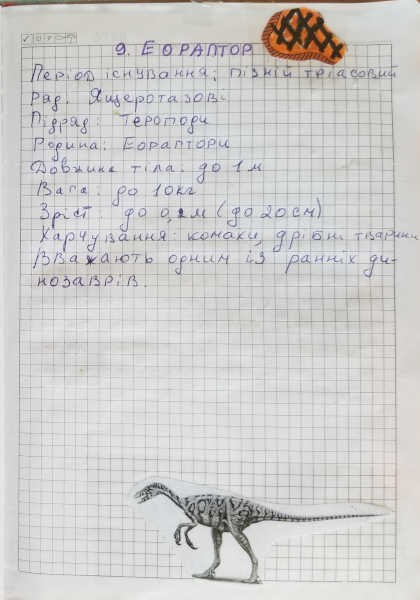 9. ЕОРАПТОР
Період існування: пізній тріасовий
Ряд: Ящеротазові
Підряд: Тероподи
Родина: Еораптори
Довжина тіла: до 1 м
Вага: до 10кг
Зріст: до 0,2м (до 20см)
Харчування: комахи, дрібні тварини
Вважають одним із ранніх ди-
нозаврів.